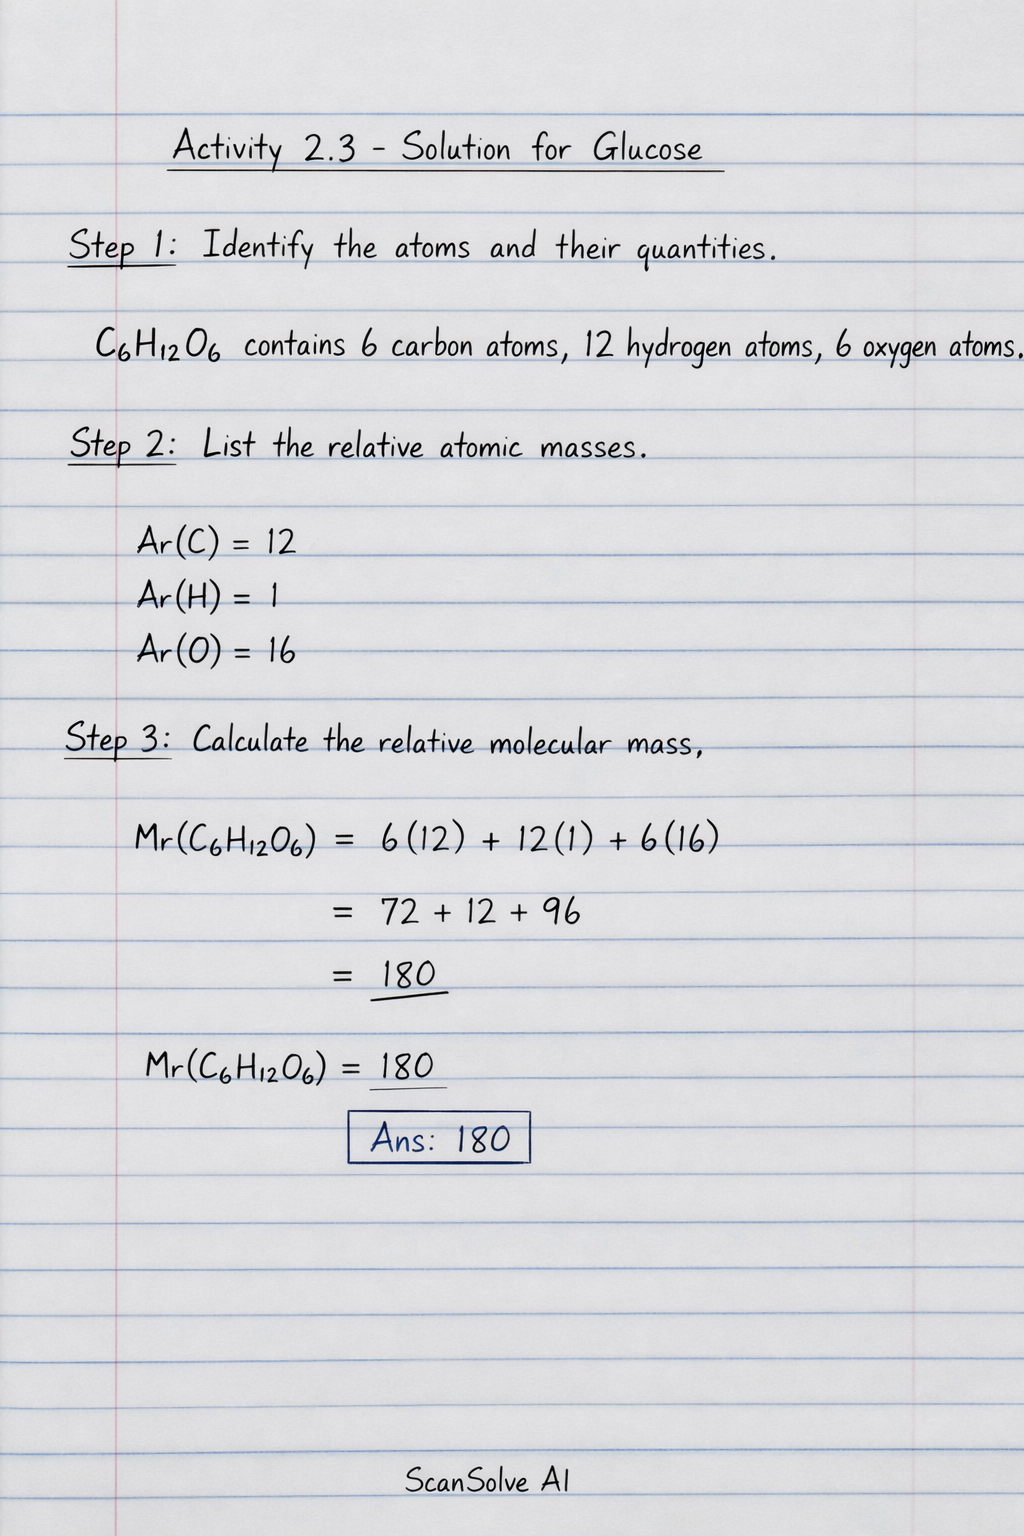 Activity 2.3 - Solution for Glucose
Step 1: Identify the atoms and their quantities.
C₆H₁₂O₆ contains 6 carbon atoms, 12 hydrogen atoms, 6 oxygen atoms.
Step 2: List the relative atomic masses.
Ar(C) = 12
Ar(H) = 1
Ar(O) = 16
Step 3: Calculate the relative molecular mass,
Mr(C₆H₁₂O₆) = 6(12) + 12(1) + 6(16)
= 72 + 12 + 96
= 180
Mr(C₆H₁₂O₆) = 180
Ans: 180
ScanSolve AI